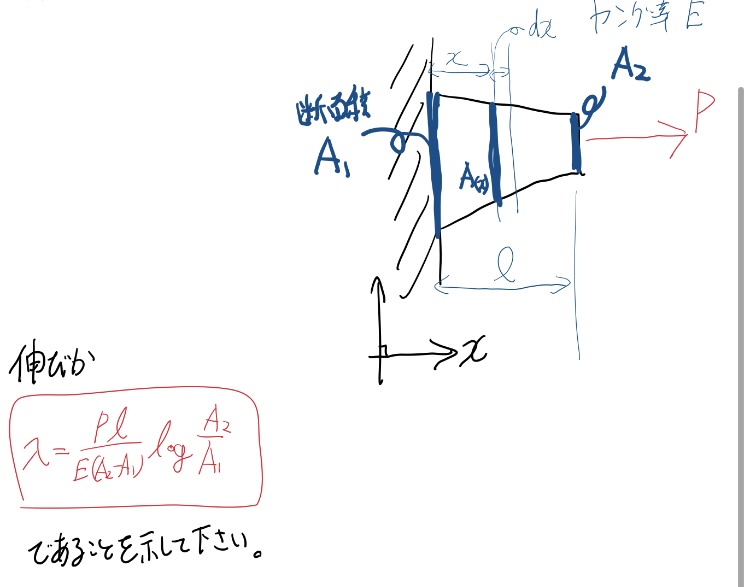 dx ヤング率 E
x
A₂
断面積
P
A₁
A(x)
l
x
伸びが
λ = Pl/E(A₂-A₁) log A₂/A₁
であることを示して下さい。